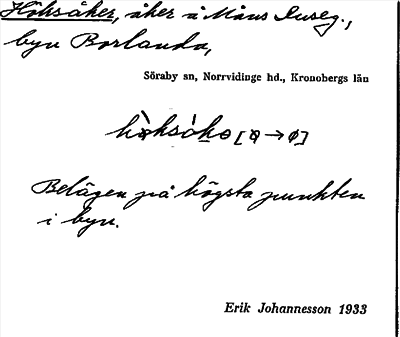 Höksåker, åker å Måns Euseg.,
byn Borlanda,
Söraby sn, Norrvidinge hd., Kronobergs län
Belägen på högsta punkten
i byn.
Erik Johannesson 1933